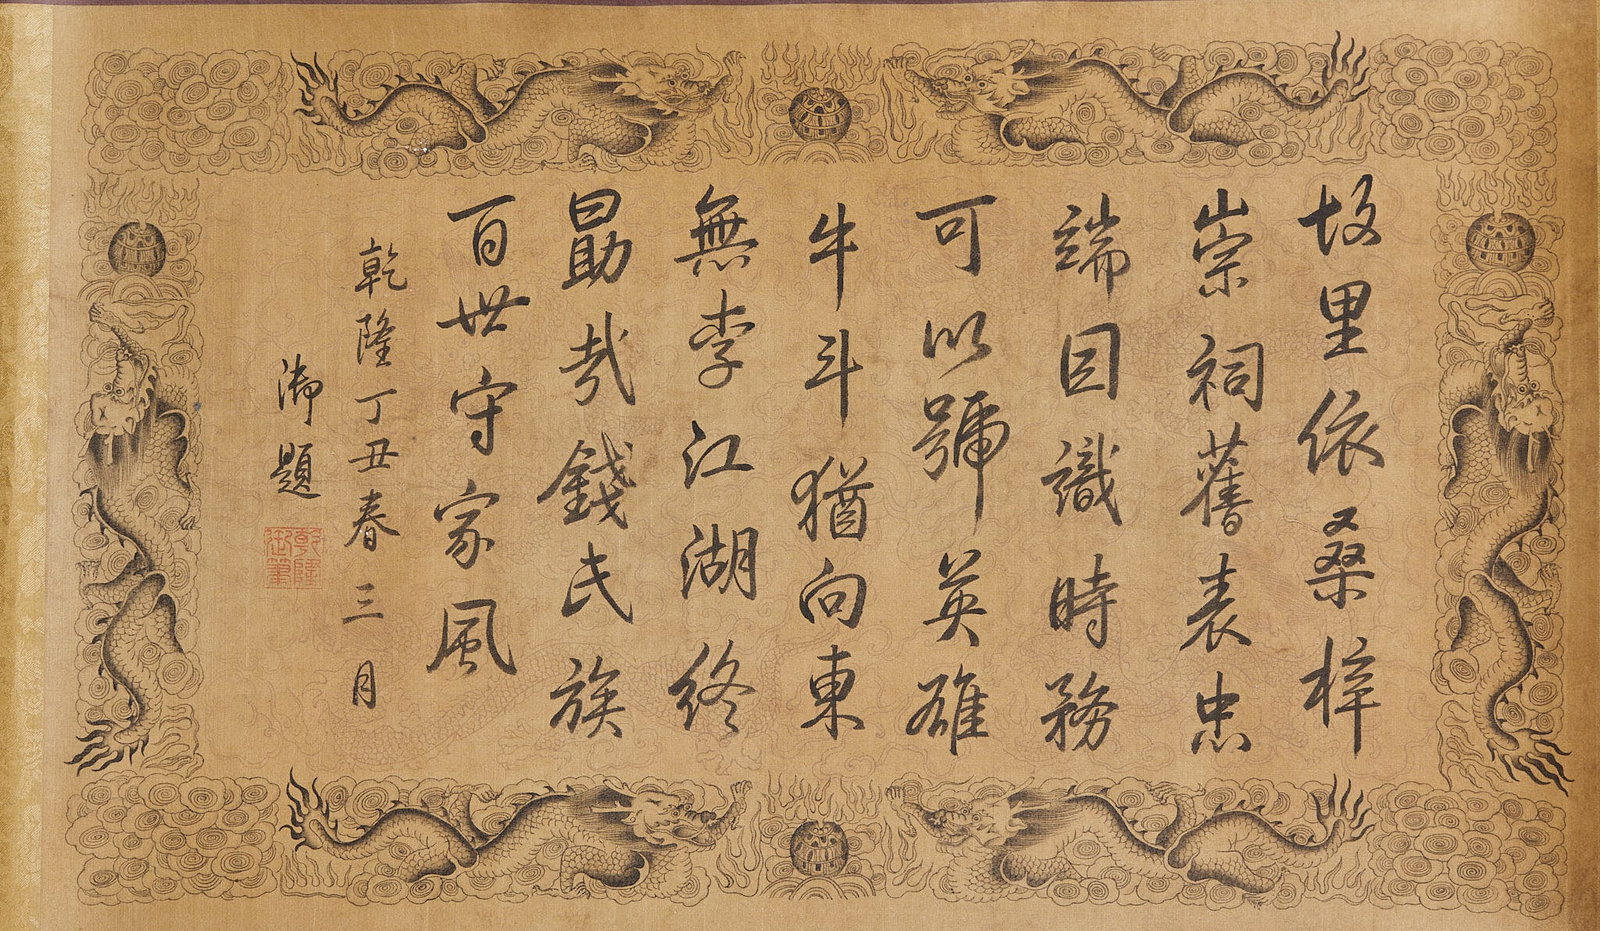 故里依桑梓
崇祠舊表忠
端因識時務
可以號英雄
牛斗猶向東
無李江湖終
勗哉錢氏族
百世守家風
乾隆丁丑春三月
御題
乾隆
御筆